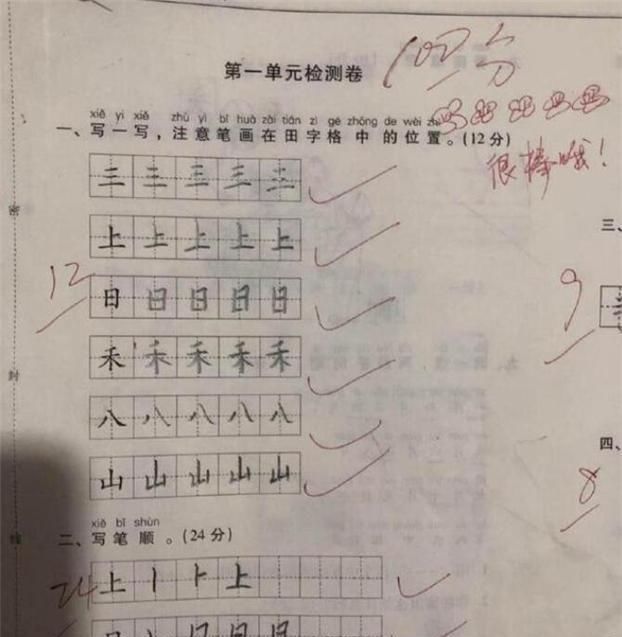 第一单元检测卷
100分
xiě yi xiě zhù yì bǐ huà zài tián zì gé zhōng de wèi zhi
一、写一写，注意笔画在田字格中的位置。(12分)
很棒哦！
三 三 三 三 三
上 上 上 上 上
三、
12
日 日 日 日 日
9
禾 禾 禾 禾 禾
八 八 八 八 八
四、
山 山 山 山 山
8
xiě bǐ shùn
二、写笔顺。(24分)
24
上 丨 ⺊ 上
密
封
线